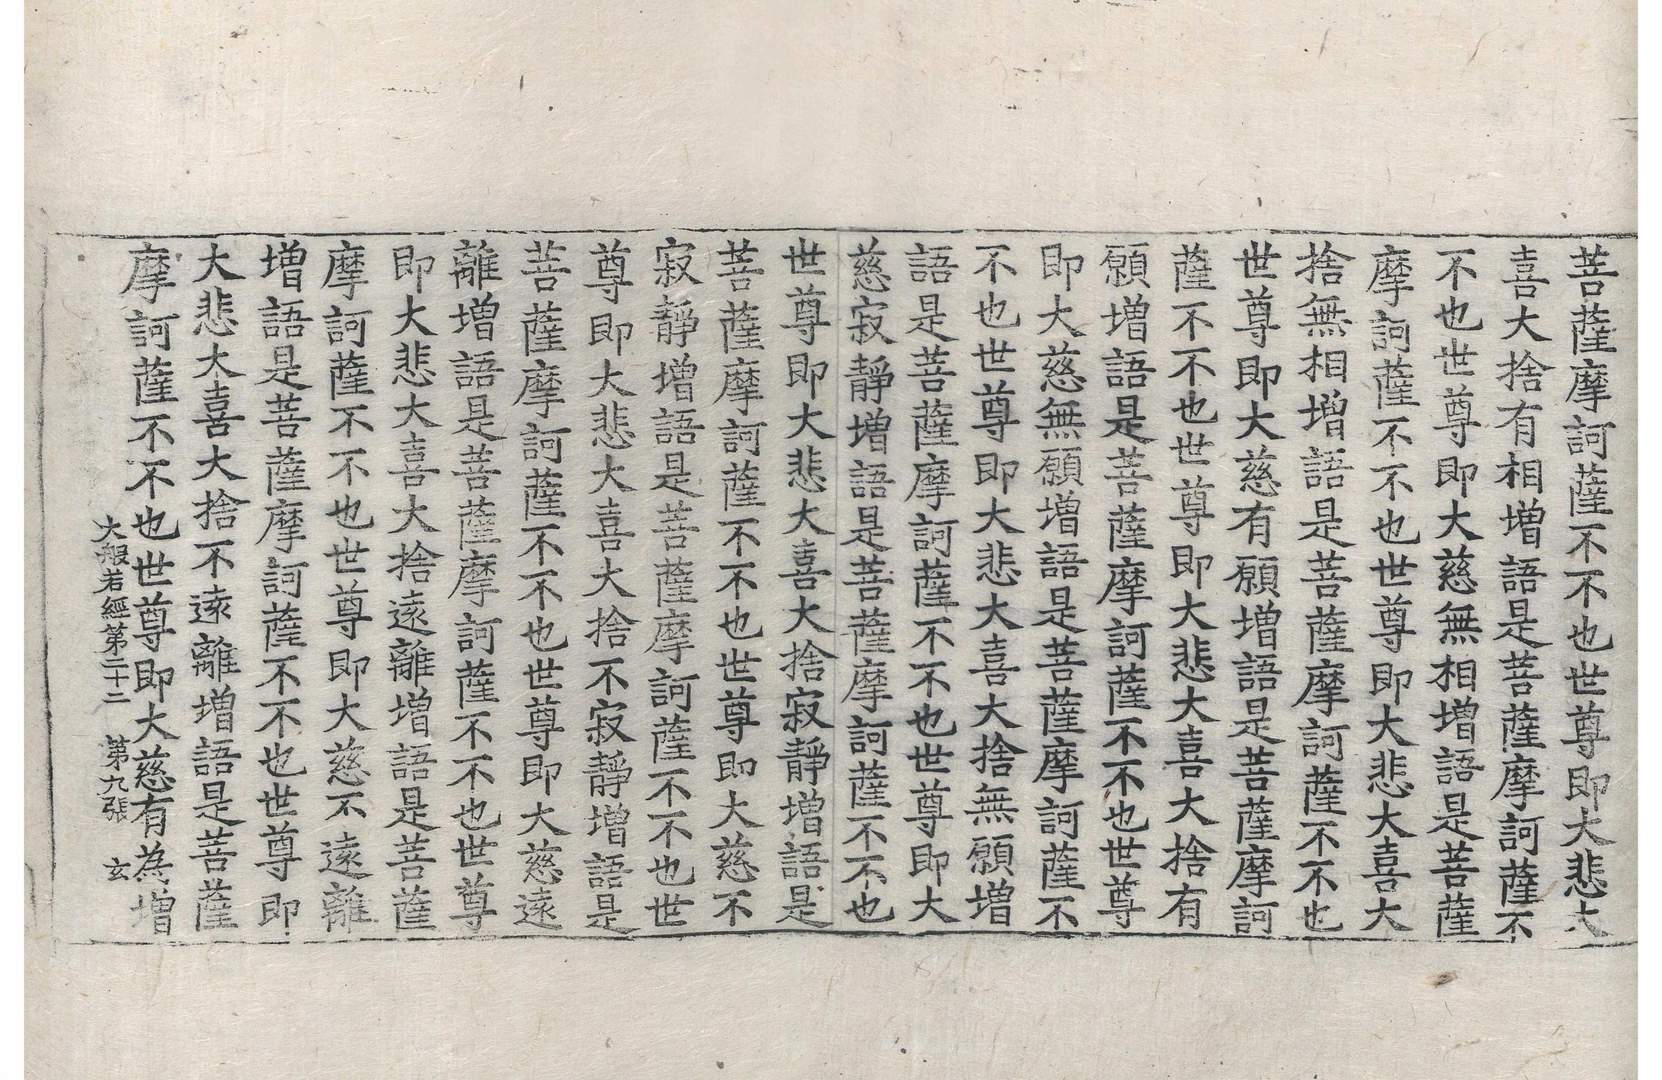 菩薩摩訶薩不不也世尊即大悲大
喜大捨有相增語是菩薩摩訶薩不
不也世尊即大慈無相增語是菩薩
摩訶薩不不也世尊即大悲大喜大
捨無相增語是菩薩摩訶薩不不也
世尊即大慈有願增語是菩薩摩訶
薩不不也世尊即大悲大喜大捨有
願增語是菩薩摩訶薩不不也世尊
即大慈無願增語是菩薩摩訶薩不
不也世尊即大悲大喜大捨無願增
語是菩薩摩訶薩不不也世尊即大
慈寂靜增語是菩薩摩訶薩不不也
世尊即大悲大喜大捨寂靜增語是
菩薩摩訶薩不不也世尊即大慈不
寂靜增語是菩薩摩訶薩不不也世
尊即大悲大喜大捨不寂靜增語是
菩薩摩訶薩不不也世尊即大慈遠
離增語是菩薩摩訶薩不不也世尊
即大悲大喜大捨遠離增語是菩薩
摩訶薩不不也世尊即大慈不遠離
增語是菩薩摩訶薩不不也世尊即
大悲大喜大捨不遠離增語是菩薩
摩訶薩不不也世尊即大慈有為增
大般若經第二十二 第九張 玄